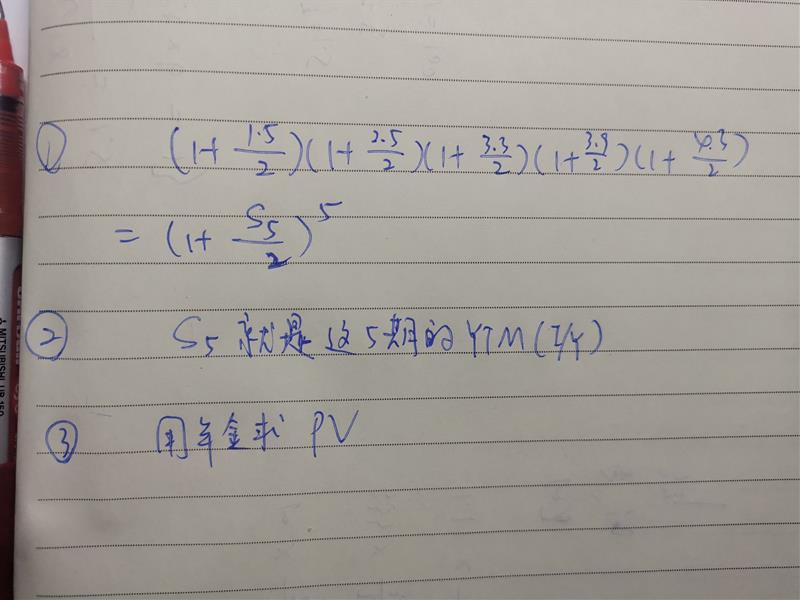 ① (1+ 1.5/2)(1+ 2.5/2)(1+ 3.3/2)(1+ 3.9/2)(1+ 4.3/2)
= (1+ S₅/2)⁵
② S₅ 就是这5期的YTM(I/Y)
③ 用年金求 PV
MITSUBISHI